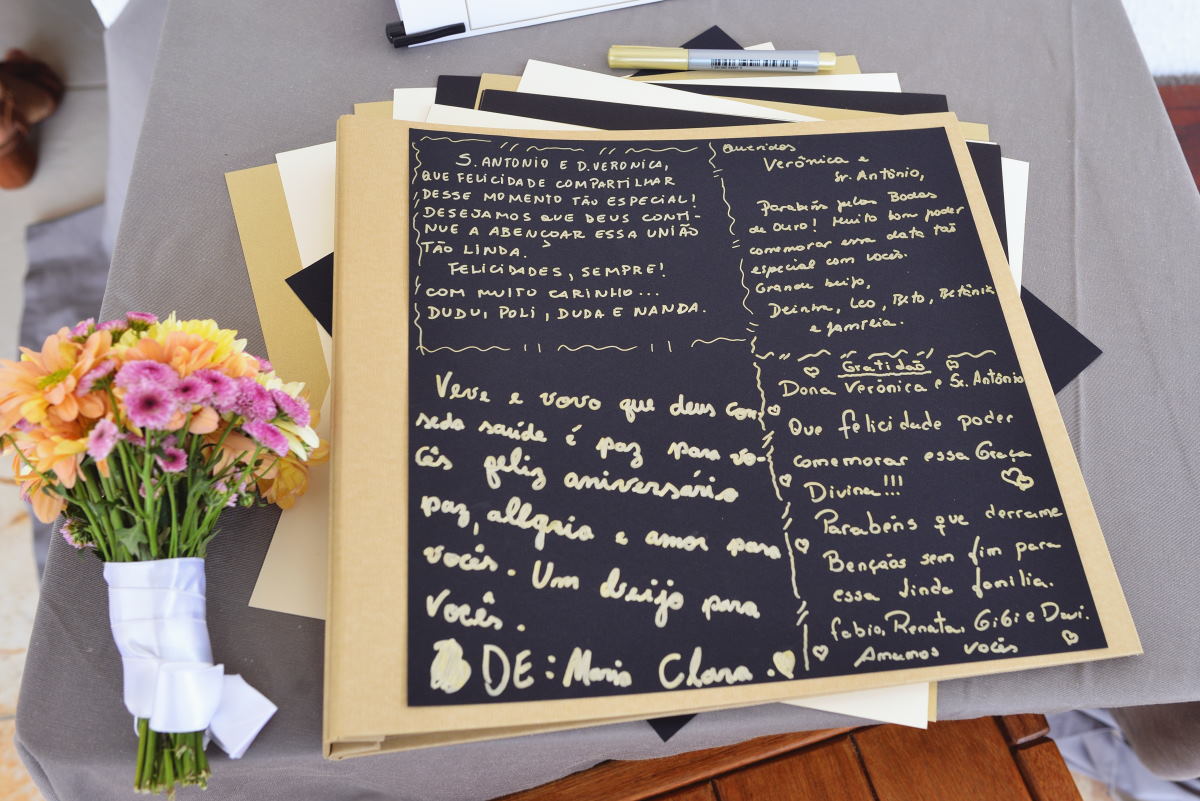 S. ANTONIO E D. VERONICA,
QUE FELICIDADE COMPARTILHAR
DESSE MOMENTO TÃO ESPECIAL!
DESEJAMOS QUE DEUS CONTI-
NUE A ABENÇOAR ESSA UNIÃO
TÃO LINDA.
FELICIDADES, SEMPRE!
COM MUITO CARINHO...
DUDU, POLI, DUDA E NANDA.
Queridos
Verônica e
Sr. Antônio,
Parabéns pelas Bodas
de Ouro! Muito bom poder
comemorar essa data tão
especial com vocês.
Grande beijo,
Deinha, Leo, Beto, Betânia
e família.
Veve e vovo que deus con
seda saúde é paz para vo-
cês feliz aniversário
paz, allgria e amor para
vocês. Um beijo para
Vocês.
DE: Maria Clara.
Gratidão
Dona Verônica e Sr. Antônio
Que felicidade poder
comemorar essa Graça
Divina!!!
Parabéns que derrame
Bençãos sem fim para
essa linda família.
Fabio, Renata, Gigi e Davi.
Amamos vocês